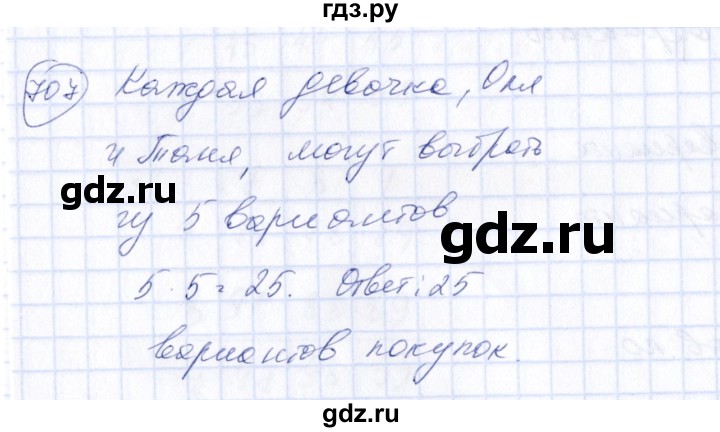 гдз.ру
707 Каждая девочка, Оля
и Таня, могут выбрать
gdz.ru
из 5 вариантов
gdz.ru
5·5=25. Ответ: 25
вариантов покупок.
gdz.ru